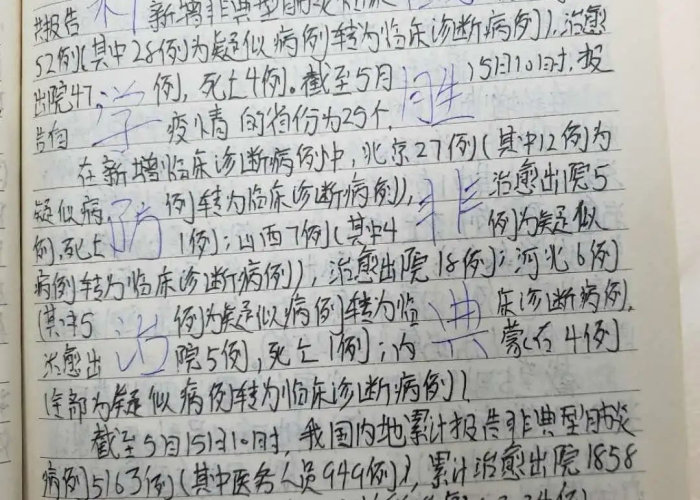 共报告 科 新增非典型肺炎临床
52例(其中28例为疑似病例转为临床诊断病例),治愈
出院47 学 例,死亡4例。截至5月 胜 15日10时,报
告有 疫情的省份为25个,
在新增临床诊断病例中,北京27例(其中12例为
疑似病 防 例转为临床诊断病例), 非 治愈出院5
例,死亡 1例;山西7例(其中4 例为疑似
病例转为临床诊断病例),治愈出院18例;河北6例
(其中5 治 例为疑似病例转为临 典 床诊断病例,
治愈出 院5例,死亡1例;内 蒙古4例
(全部为疑似病例转为临床诊断病例)
截至5月15日10时,我国内地累计报告非典型肺炎
病例5163例(其中医务人员949例),累计治愈出院1858